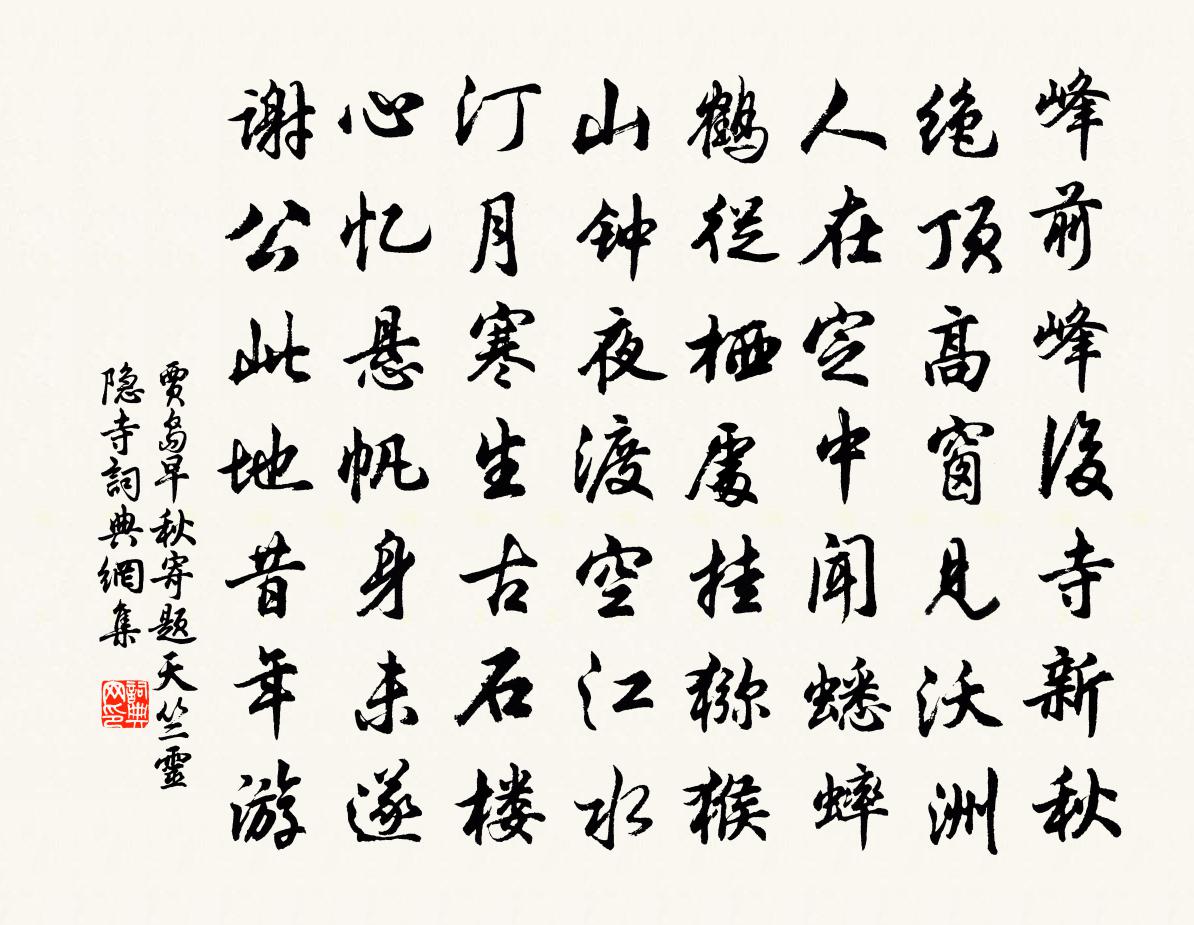 峰前峰後寺新秋
绝顶高窗见沃洲
人在定中闻蟋蟀
鹤從栖處挂猕猴
山钟夜渡空江水
汀月寒生古石楼
心忆悬帆身未遂
谢公此地昔年游
賈島早秋寄题天竺靈
隐寺詞典網集
詞典网印